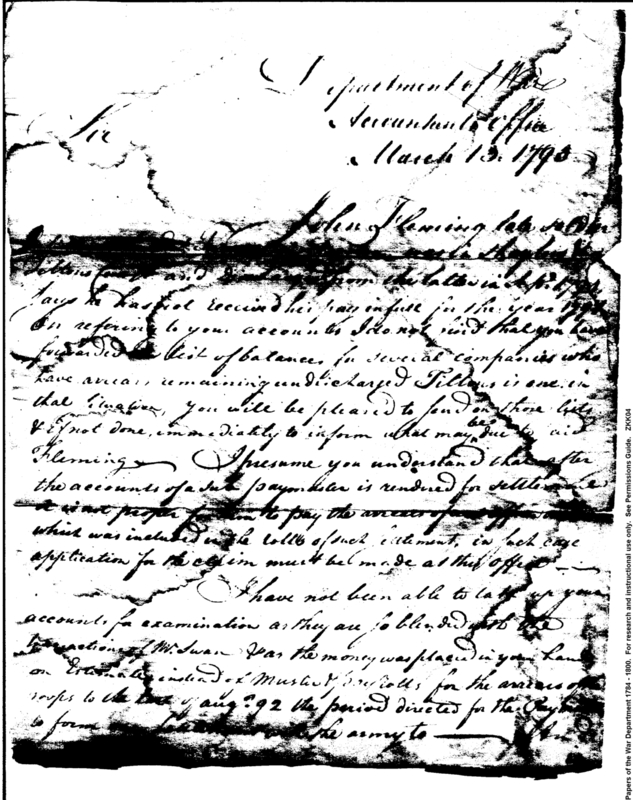 Department of War
Accountants Office
Sir
March 13. 1793
John Fleming late soldier
from the latter in
says he has not received his pay in full for the year
On reference to your accounts I do not find that you have
forwarded a list of balances for several companies who
have arrears remaining undischarged Tillons is one in
that situation, you will be pleased to send on those lists
& if not done, immediately to inform what may be due to said
Fleming I presume you understand that after
the accounts of a Sub paymaster is rendered for settlement
it is not proper for him to pay the arrears of any
which was included in the rolls of such settlement, in such case
application for the claim must be made at this office
I have not been able to take up your
accounts for examination as they are so blended with the
transactions of Mr Swan & as the money was placed in your hands
on Estimates instead of Muster & payrolls for the arrears of the
troops to the of augt. 92 the period directed for the
to form the army to
Papers of the War Department 1784 - 1800. For research and instructional use only. See Permissions Guide. ZKK04